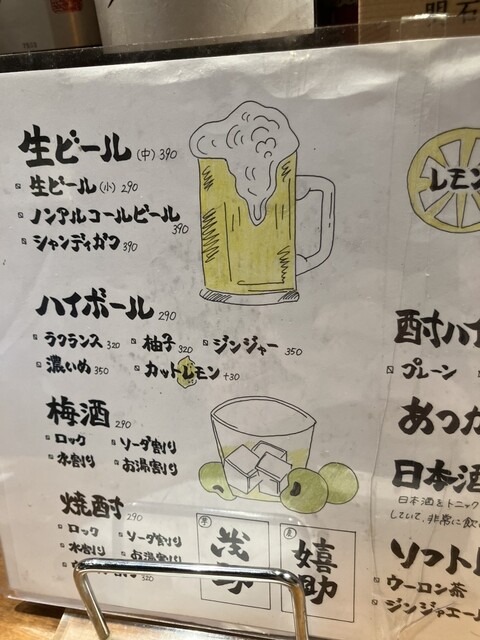 生ビール(中) 390
生ビール(小) 290
ノンアルコールビール 390
シャンディガフ 390
ハイボール 290
ラフランス 320 柚子 320 ジンジャー 350
濃いめ 350 カットレモン +30
梅酒 290
ロック ソーダ割り
水割り お湯割り
焼酎 290
ロック ソーダ割り
水割り お湯割り
320
茂助
嬉助
レモン
酎ハイ
プレーン
あつか
日本酒
日本酒をトニック
していて、非常に飲
ソフト
ウーロン茶
ジンジャエール
明石